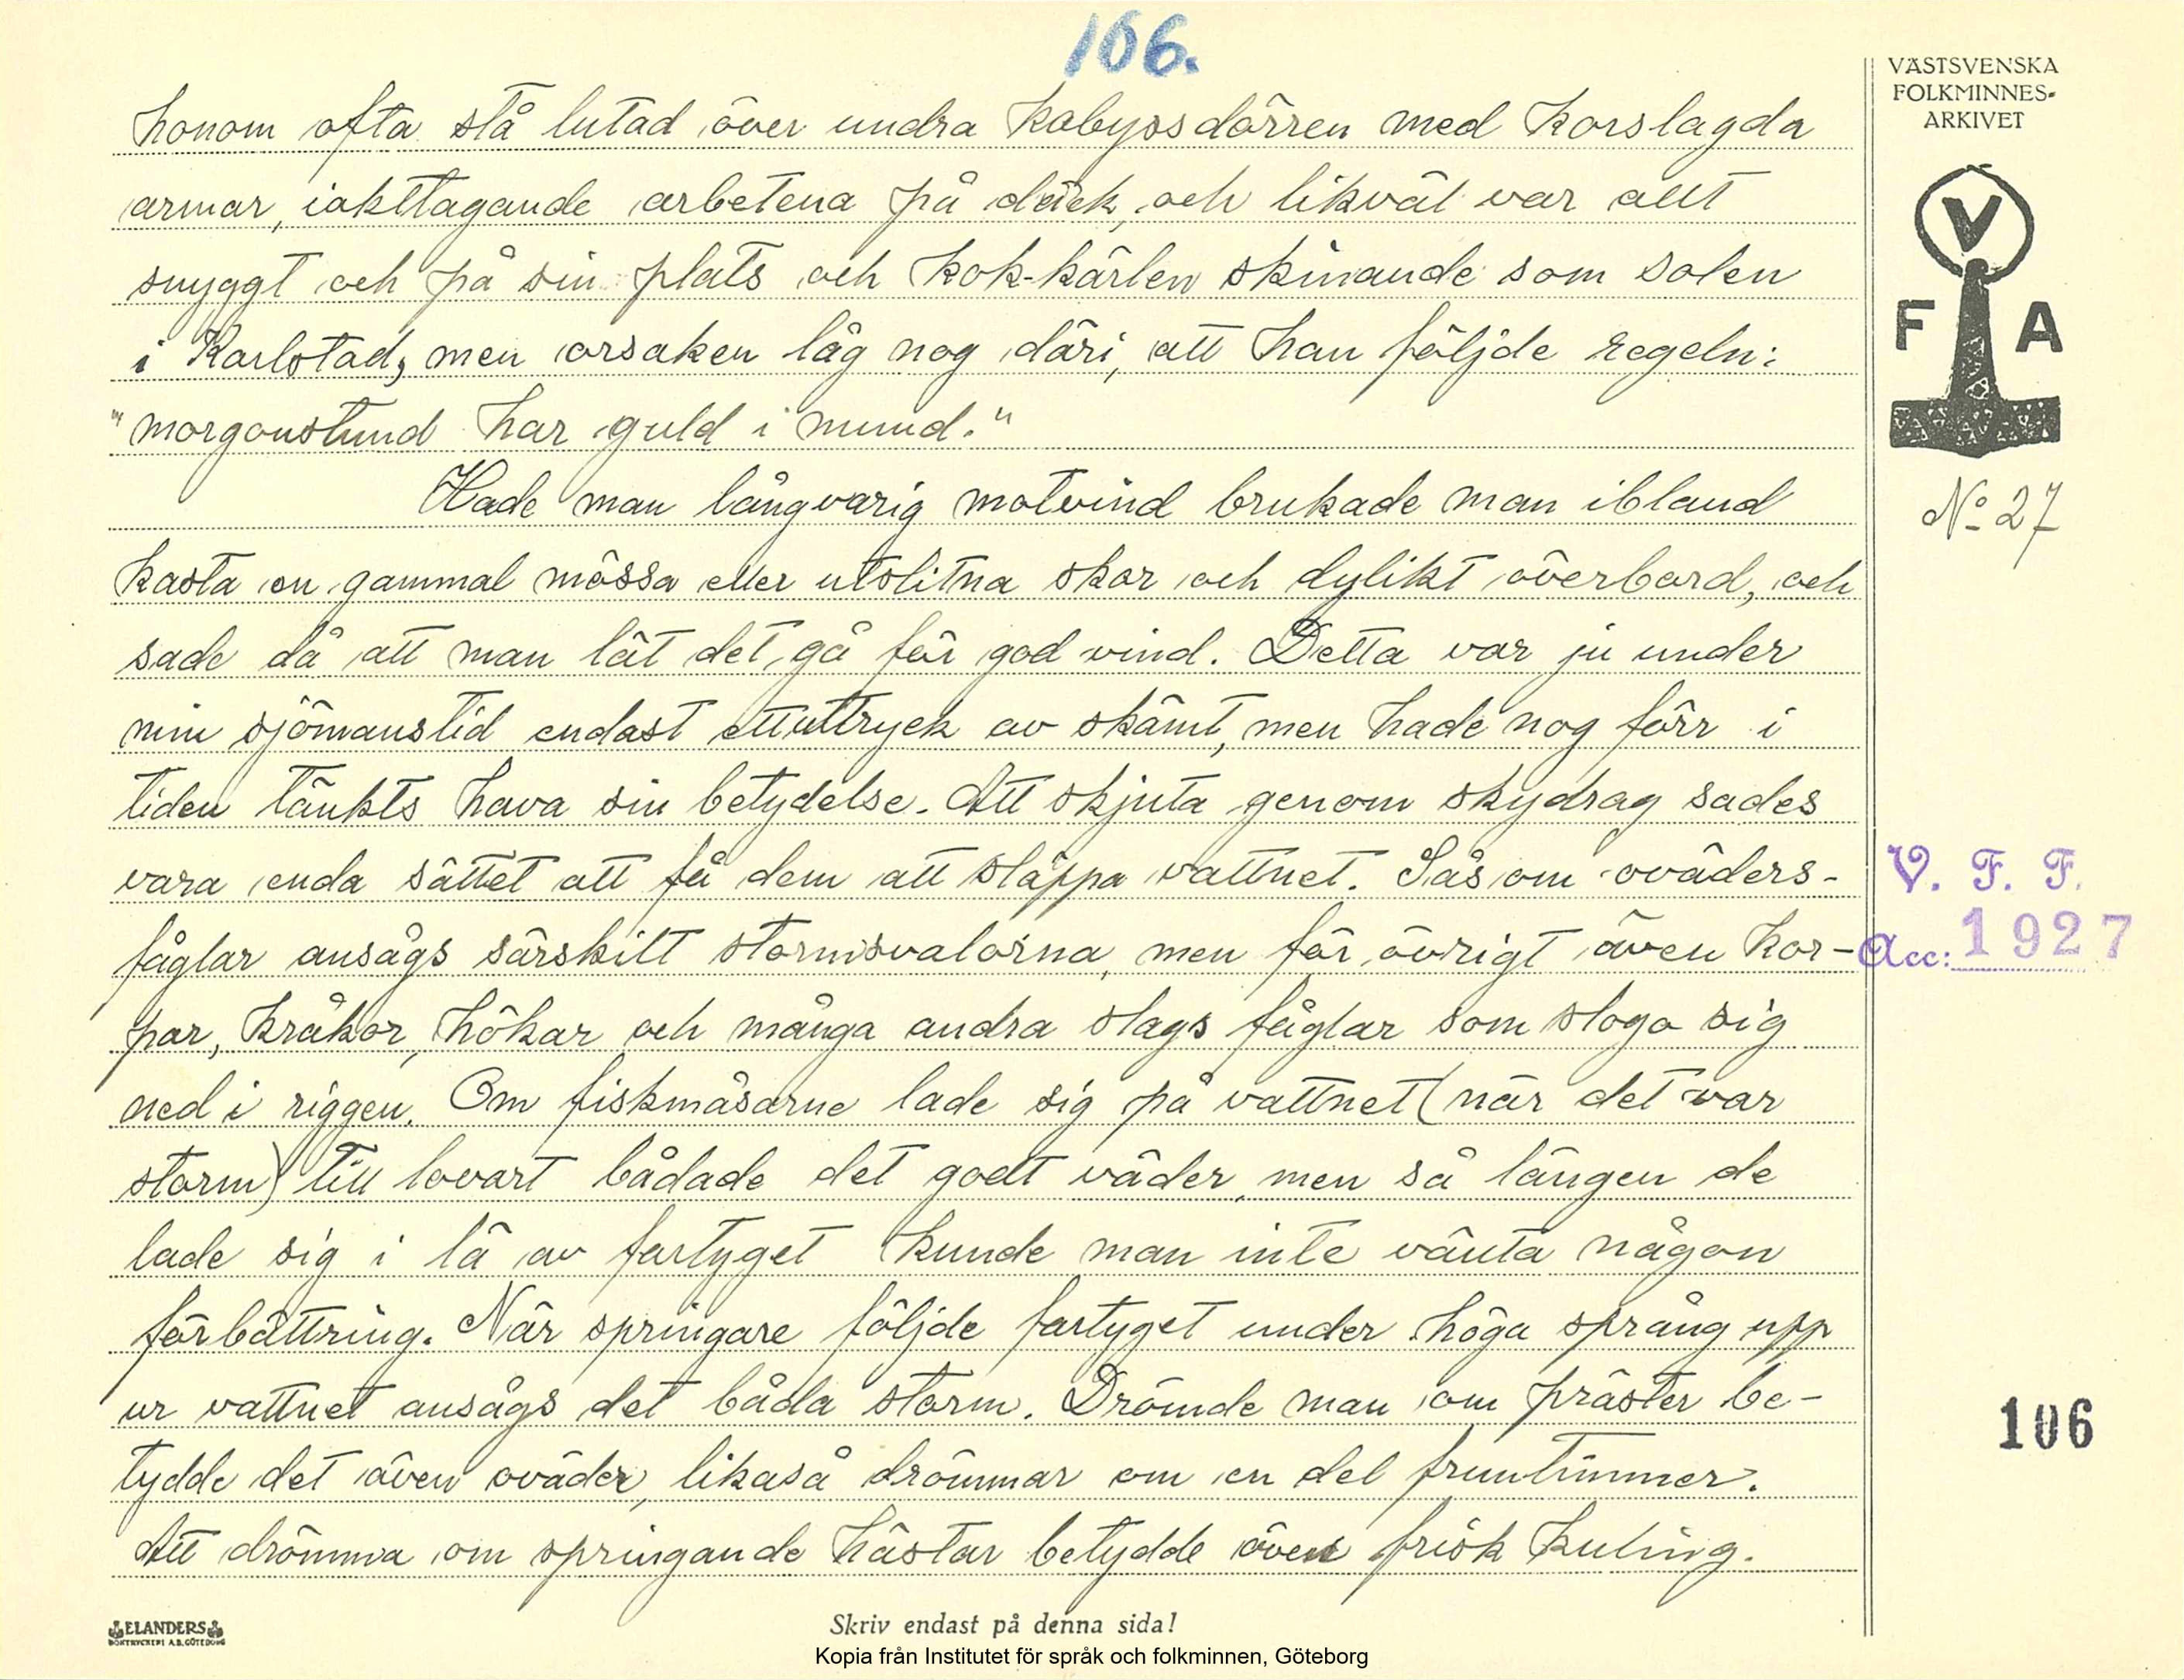 106.
honom ofta stå lutad över undra kabyssdörren med korslagda
armar, iakttagande arbetena på däck, och likväl var allt
snyggt och på sin plats och kok-kärlen skinande som solen
i Karlstad, men orsaken låg nog däri, att han följde regeln:
"morgonstund har guld i mund."
Hade man långvarig motvind brukade man ibland
kasta en gammal mössa eller utslitna skor och dylikt överbord, och
sade då att man lät det gå för god vind. Detta var ju under
min sjömanstid endast ett uttryck av skämt, men hade nog förr i
tiden tänkts hava sin betydelse. Att skjuta genom skydrag sades
vara enda sättet att få dem att släppa vattnet. Såsom oväders-
fåglar ansågs särskilt stormsvalorna, men för övrigt även kor-
par, kråkor, hökar och många andra slags fåglar som slogo sig
ned i riggen. Om fiskmåsarne lade sig på vattnet (när det var
storm) till lovart bådade det godt väder, men så längen de
lade sig i lä av fartyget kunde man inte vänta någon
förbättring. När springare följde fartyget under höga språng upp
ur vattnet ansågs det båda storm. Drömde man om präster be-
tydde det även oväder, likaså drömmar om en del fruntimmer.
Att drömma om springande hästar betydde även frisk kuling.
VÄSTSVENSKA
FOLKMINNES-
ARKIVET
V
F A
No 27
V. F. F.
Acc: 1927
106
ELANDERS
BOKTRYCKERI A.B. GÖTEBORG
Skriv endast på denna sida!
Kopia från Institutet för språk och folkminnen, Göteborg